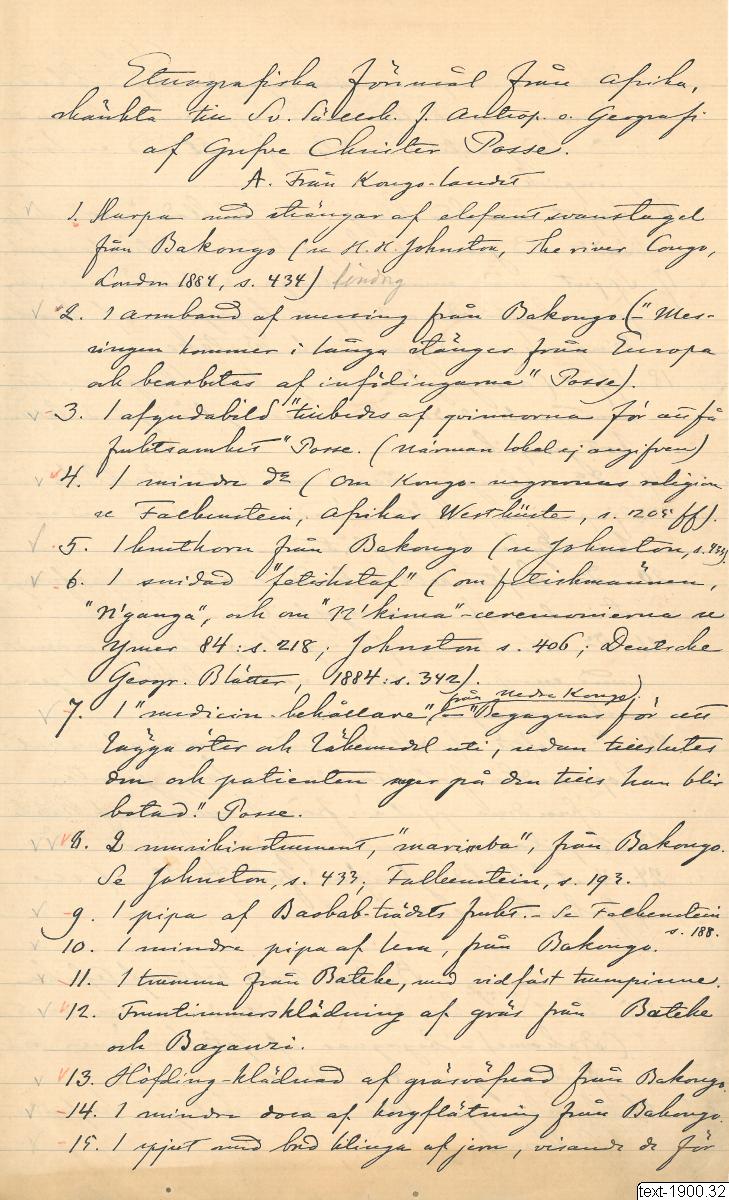 Etnografiska föremål från Afrika,
skänkta till Sv. Sällsk. f. Antrop. o. Geografi
af Grefve Christer Posse.
A. Från Kongo-landet
1. Harpa med strängar af elefantsvanstagel
från Bakongo (se H. H. Johnston, The river Congo,
London 1884, s. 434)
2. 1 armband af messing från Bakongo (-"Mes-
singen kommer i långa stänger från Europa
och bearbetas af infödingarna" Posse).
3. 1 afgudabild "tillbedes af qvinnorna för att få
fruktsamhet" Posse. (närmare lokal ej angifven)
4. 1 mindre do (Om Kongo-negrernas religion
se Falkenstein, Afrikas Westküste, s. 1205 ff).
5. 1 kruthorn från Bakongo (se Johnston, s. 433)
6. 1 snidad "fetishstaf" (om fetishmännen,
"N'ganga", och om "N'kima"-ceremonierna se
Ymer 84: s. 218; Johnston s. 406; Deutsche
Geogr. Blätter, 1884: s. 342).
7. 1 "medicin-behållare" (från Nedre Kongo). - "Begagnas för att
lägga örter och läkemedel uti, sedan tillslutes
den och patienten super på den tills han blir
botad." Posse.
8. 2 musikinstrument, "marimba", från Bakongo.
Se Johnston, s. 433; Falkenstein, s. 193.
9. 1 pipa af Baobab-trädets frukt. - Se Falkenstein
s. 188.
10. 1 mindre pipa af lera, från Bakongo.
11. 1 trumma från Bateke, med vidfäst trumpinne.
12. Fruntimmersklädning af gräs från Bateke
och Bayanzi.
13. Höfding-klädnad af gräsväfnad från Bakongo.
14. 1 mindre dosa af korgflätning från Bakongo.
15. 1 spjut med bred klinga af jern, visande de för
text-1900.32